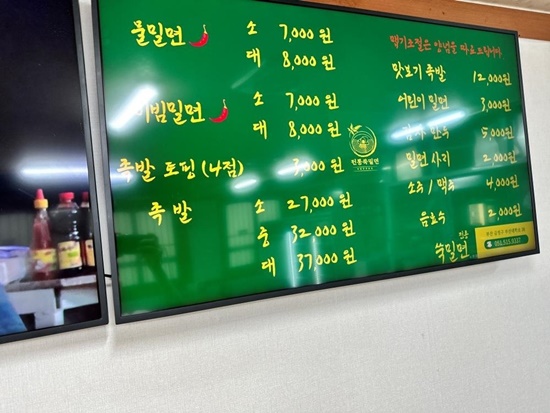 물밀면 소 7,000원
대 8,000원
비빔밀면 소 7,000원
대 8,000원
족발 토핑 (4점) 3,000원
족발 소 27,000원
중 32,000원
대 37,000원
전통쑥밀면
맵기조절은 양념을 따로 드립니다.
맛보기 족발 12,000원
어린이 밀면 3,000원
만두 5,000원
밀면 사리 2,000원
소주/맥주 4,000원
음료수 2,000원
전통
쑥밀면
051.515.0327